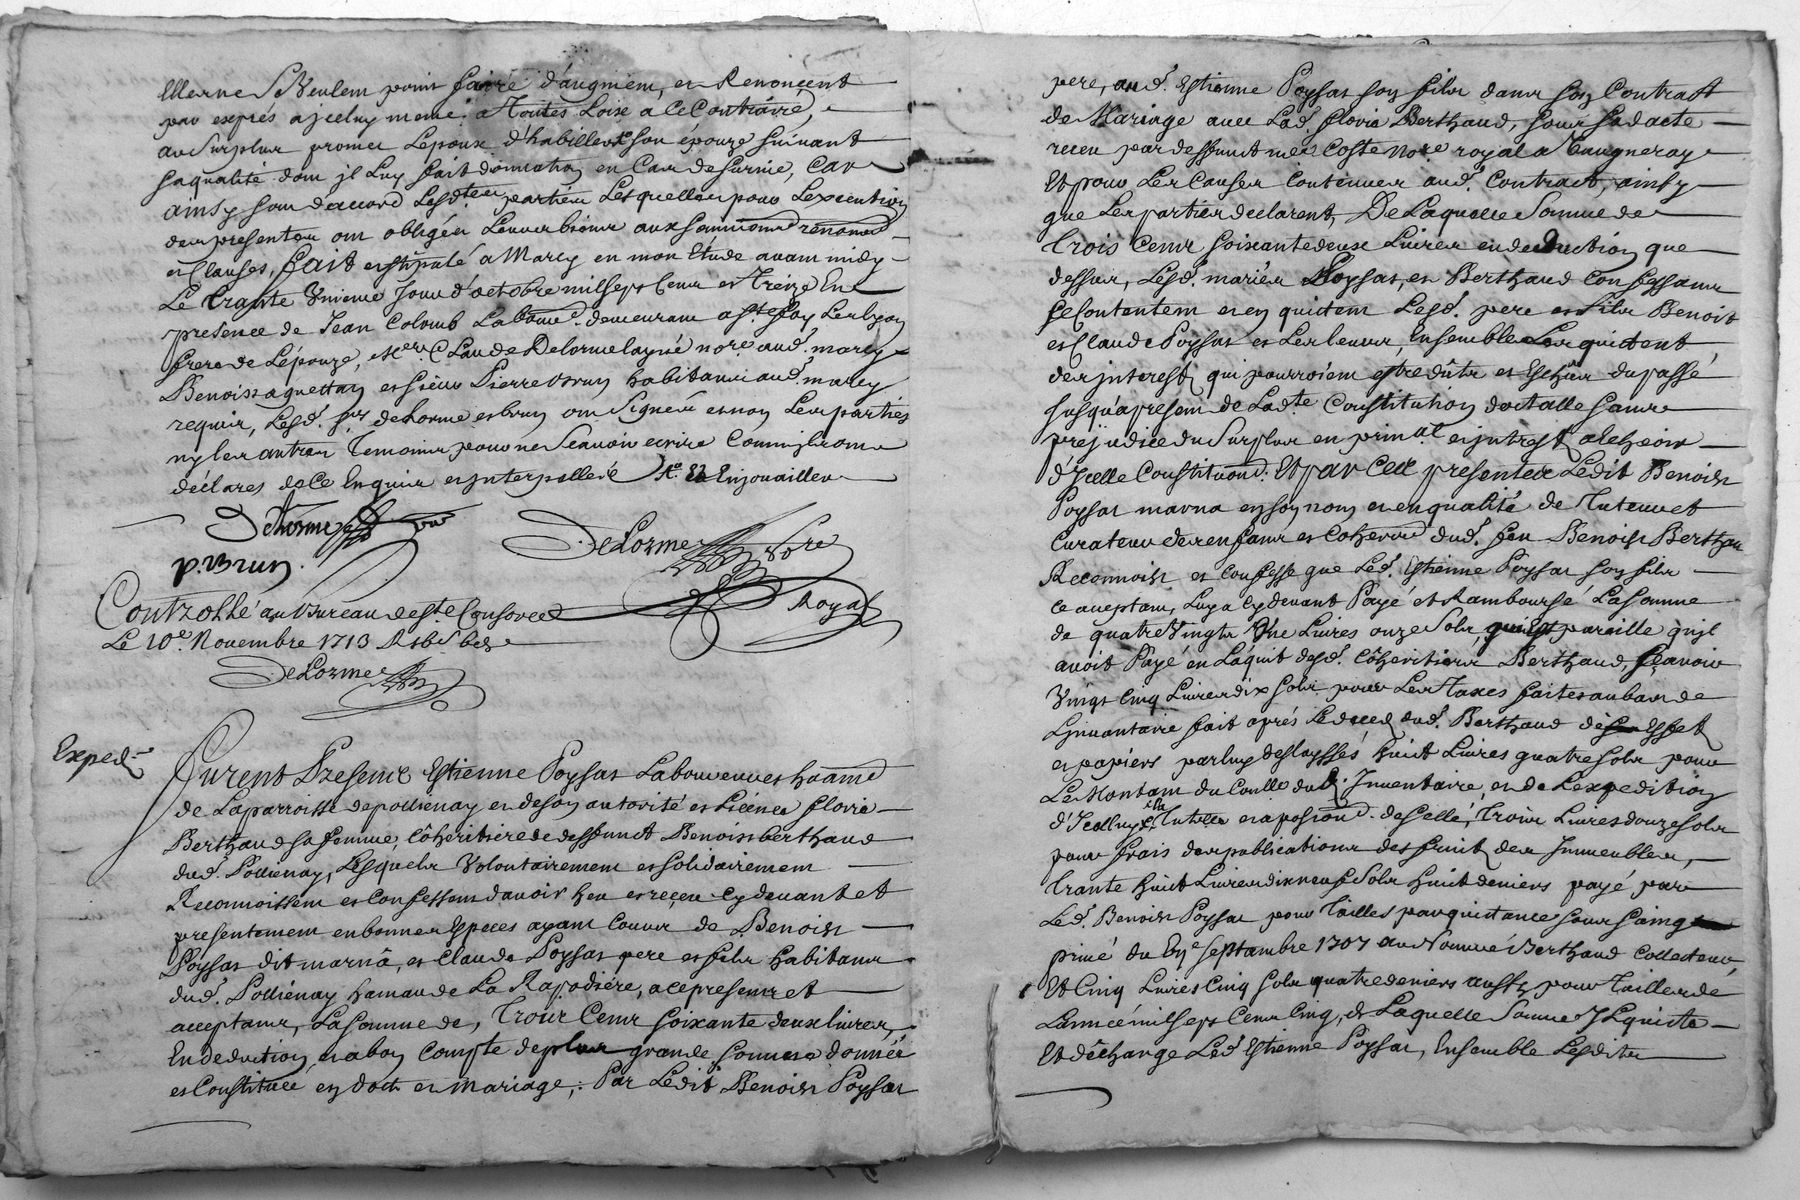 Ellerne Veulem point faire d'augmem, et Renoncent
par exprés a jceluy meme a Toutes Loix a Ce Contraire,
au Surplus promet Lepoux d'habiller son épouze suivant
saqualité dont jl Luy fait donnation en Cas de survie, Car
ainsy sont daccord Lesd.tes parties Lesquelles pour Lexecution
des presentes ont obligées Leurs biens aux soumissions renond
et Clauses, fait et stipulé a Marcy en mon Etude avant midy
Le trante Unieme Jour d'octobre mil sept Cent et Treize En
presence de Jean Colomb Laboure. demeurant a S.te foy Les Lyon
frere de Lépouze, Claude Delorme layné no.re aud. marcy
Benoist aquettan et sieur Pierre brun habitants aud. marcy
requis, Lesd. s.rs delorme et brun ont Signéz et non Les parties
ny les autres Temoins pour ne Scavoir ecrire Comm jls ont
déclarés de Ce Enquis et jnterpellés
Delorme
DeLorme No.re
p. Brun.
Royal
Controllé au Bureau de S.te Consorce
Le 10.e Novembre 1713
DeLorme
Exped.
Furent Presents Estienne Poysat Laboureur et hoame
de Laparroisse de pollienay et de son autorité et Licence floric
Berthaud sa femme, Cöheritiere de deffunct Benoist berthaud
dud. Pollienay, Lesquels Volontairement et solidairement
Reconnoissent et Confessent d'avoir heu et reçeu Cy devant et
presentement en bonnes Especes ayant Cours de Benoist
Poysat dit marnâ, et Claude Poysat pere et fils habitans
dud. Polliénay hamau de La Rapodiére, a ce presents et
acceptans, La somme de, Trois Cents soixante deux livres,
En deduction et a bon Compte de plus grande somme a donnée
et Constituée en dott et Mariage, Par Ledit Benoist Poysat
pere, aud. Estienne Poysat son fils dans son Contract
de Mariage avec Lad. floric Berthaud, sous sa dacte
receu par deffunct me Coste No.re royal a Vaugneray
Et pour Les Causes Contenues aud. Contract, ainsy
que Les parties declarent, De Laquelle Somme de
trois Cents soixante deux Livres en deduction que
dessus, Lesd. mariés Poysat, et Berthaud Confessants
se Contentent et en quittent Lesd. pere et fils Benoist
et Claude Poysat et Les leurs, Ensemble Les quittent
des jnterest qui pourroient estre dûts et Eschus du passé
jusqu'apresent de Lad.te Constitution dotalle sans
prejudice du Surplus en prin.al et jntrest a lecheoir
d'Jcelle Constitu.on. Et par Ces presentes Ledit Benoist
Poysat marna en son nom et en qualité de Tuteur et
Curateur des enfans et Coherit. dud. feu Benoist Berthau
Reconnoist et Confesse que Led. Estienne Poysat son fils
ce acceptant, Luy a Cy devant Payé et Rambourse La somme
de quatre Vingts Une Livres onze Sols, quest pareille qu'jl
avoit Payé en Laquit desd. Cöheritiers Berthaud, Sçavoir
Vingt Cinq Livres dix sols pour Les Taxes faites au bas de
Ljnvantaire fait aprés Le deced dud. Berthaud des Effets
et papiers par luy delayssés huict Livres quatre sols pour
Le Montant du Conlle dud. Jnventaire, et de Lexpedition
d'Jcelluy, Tutelle et aposion de sellé, Trois Livres douze sols
pour frais des publications des fruits des Jmmeubles,
trante huict Livres dix neuf Sols huict deniers payé par
Led. Benoist Poysat pour Tailles par quittance sous saing
privé du septambre 1707 au Nommé Berthaud Collecteur,
Et Cinq Livres Cinq sols quatre deniers aussy pour Tailles de
Lannée mil sept Cents Cinq, de Laquelle Somme Jl quitte
Et dêcharge Led. Estienne Poysat, Ensemble Lesdits